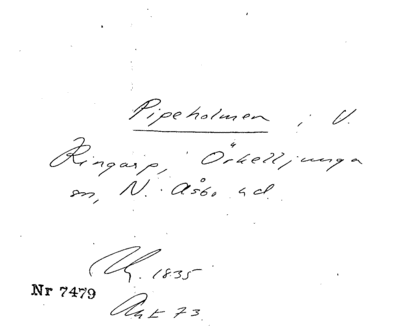 Pipeholmen i V.
Ringarp, Örkelljunga
sn, N. Åsbo hd.
1835
Nr 7479
Akt 73